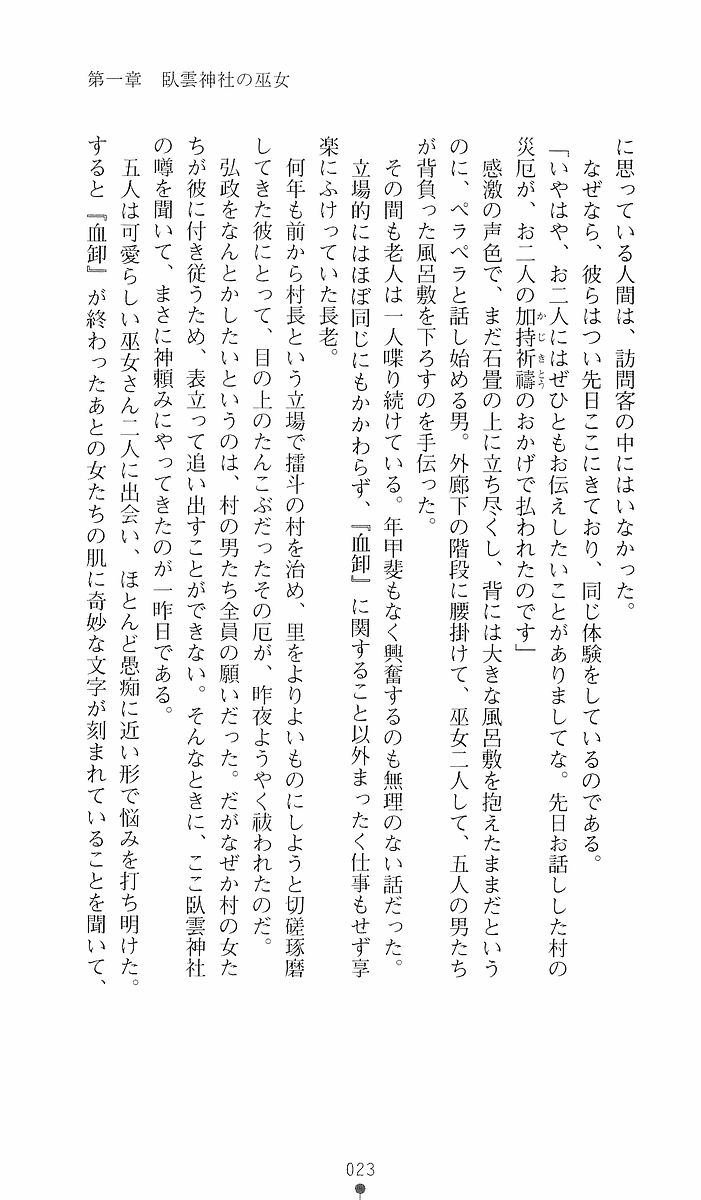 第一章　臥雲神社の巫女
に思っている人間は、訪問客の中にはいなかった。
なぜなら、彼らはつい先日ここにきており、同じ体験をしているのである。
「いやはや、お二人にはぜひともお伝えしたいことがありましてな。先日お話しした村の
災厄が、お二人の加持祈禱のおかげで払われたのです」
かじきとう
感激の声色で、まだ石畳の上に立ち尽くし、背には大きな風呂敷を抱えたままだという
のに、ペラペラと話し始める男。外廊下の階段に腰掛けて、巫女二人して、五人の男たち
が背負った風呂敷を下ろすのを手伝った。
その間も老人は一人喋り続けている。年甲斐もなく興奮するのも無理のない話だった。
立場的にはほぼ同じにもかかわらず、『血卸』に関すること以外まったく仕事もせず享
楽にふけっていた長老。
何年も前から村長という立場で擂斗の村を治め、里をよりよいものにしようと切磋琢磨
してきた彼にとって、目の上のたんこぶだったその厄が、昨夜ようやく祓われたのだ。
弘政をなんとかしたいというのは、村の男たち全員の願いだった。だがなぜか村の女た
ちが彼に付き従うため、表立って追い出すことができない。そんなときに、ここ臥雲神社
の噂を聞いて、まさに神頼みにやってきたのが一昨日である。
五人は可愛らしい巫女さん二人に出会い、ほとんど愚痴に近い形で悩みを打ち明けた。
すると『血卸』が終わったあとの女たちの肌に奇妙な文字が刻まれていることを聞いて、
023